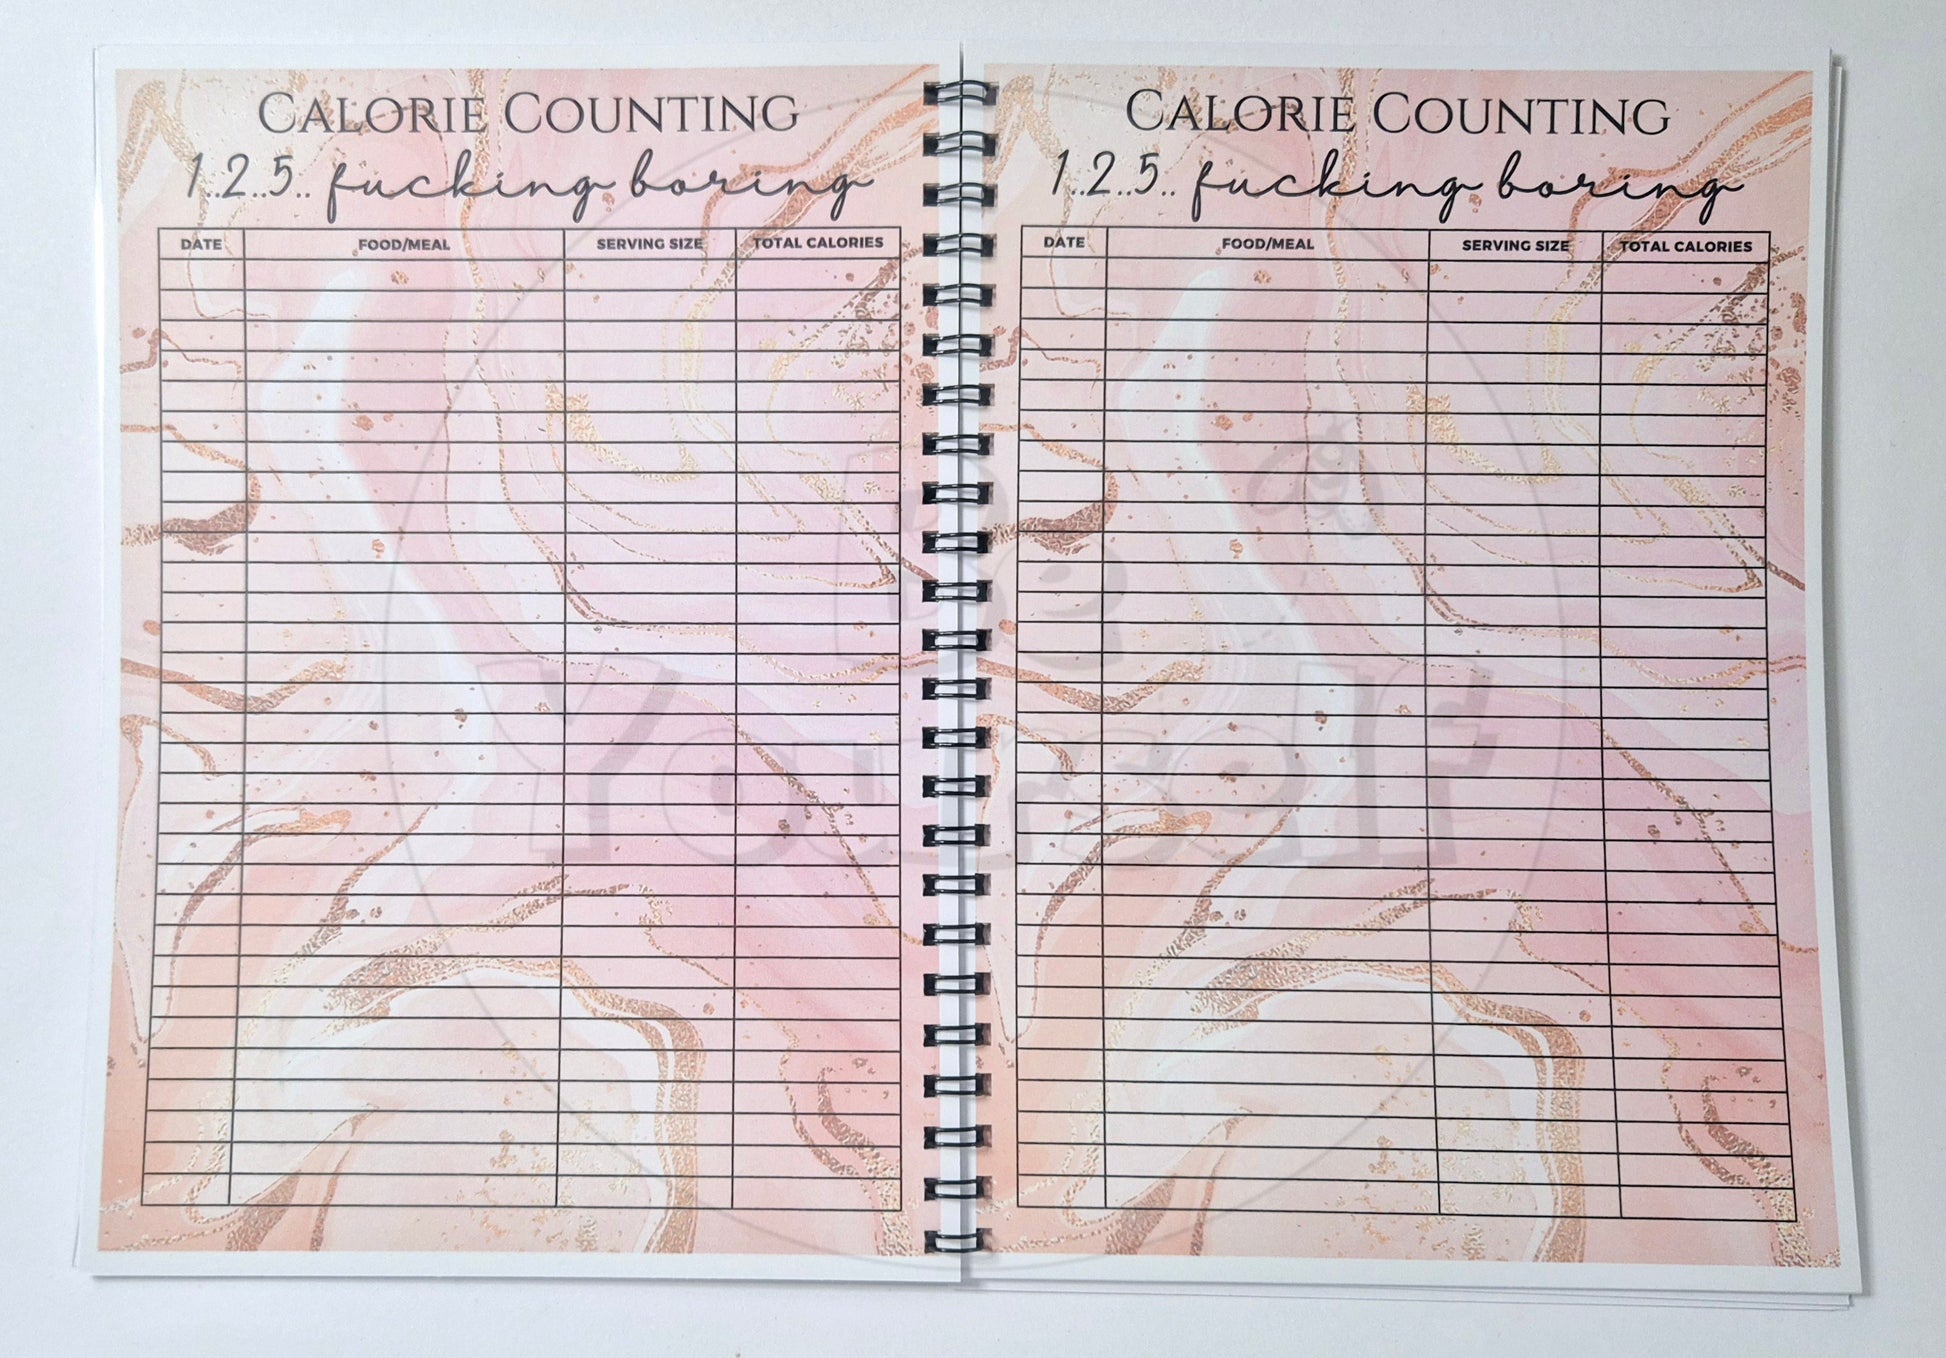 CALORIE COUNTING
1..2..5.. fucking boring
DATE FOOD/MEAL SERVING SIZE TOTAL CALORIES
CALORIE COUNTING
1..2..5.. fucking boring
DATE FOOD/MEAL SERVING SIZE TOTAL CALORIES
Be
Yourself